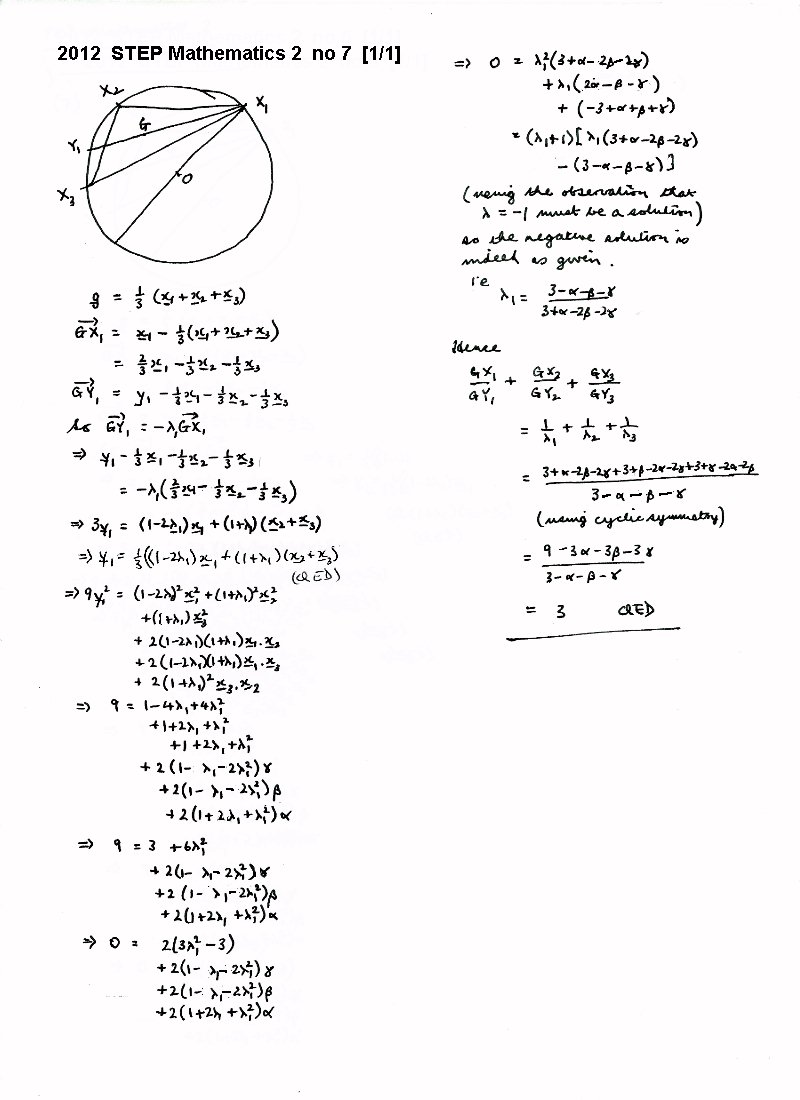 2012 STEP Mathematics 2 no 7 [1/1]
X₂
X₁
G
Y₁
O
X₃
g = 1/3 (x₁ + x₂ + x₃)
GX₁ = x₁ - 1/3(x₁ + x₂ + x₃)
= 2/3 x₁ - 1/3 x₂ - 1/3 x₃
GY₁ = y₁ - 1/3 x₁ - 1/3 x₂ - 1/3 x₃
So GY₁ = -λ₁GX₁
⇒ y₁ - 1/3 x₁ - 1/3 x₂ - 1/3 x₃
= -λ₁(2/3 x₁ - 1/3 x₂ - 1/3 x₃)
⇒ 3y₁ = (1-2λ₁)x₁ + (1+λ₁)(x₂+x₃)
⇒ y₁ = 1/3((1-2λ₁)x₁ + (1+λ₁)(x₂+x₃)
(QED)
⇒ 9y₁² = (1-2λ₁)²x₁² + (1+λ₁)²x₂²
+(1+λ₁)x₃²
+ 2(1-2λ₁)(1+λ₁)x₁.x₂
+ 2(1-2λ₁)(1+λ₁)x₁.x₃
+ 2(1+λ₁)²x₃.x₂
⇒ 9 = 1-4λ₁+4λ₁²
+1+2λ₁+λ₁²
+1+2λ₁+λ₁²
+ 2(1-λ₁-2λ₁²)γ
+ 2(1-λ₁-2λ₁²)β
+ 2(1+2λ₁+λ₁²)α
⇒ 9 = 3 + 6λ₁²
+ 2(1-λ₁-2λ₁²)γ
+2 (1-λ₁-2λ₁²)β
+ 2(1+2λ₁+λ₁²)α
⇒ 0 = 2(3λ₁²-3)
+ 2(1-λ₁-2λ₁²)γ
+2(1-λ₁-2λ₁²)β
+2(1+2λ₁+λ₁²)α
⇒ 0 = λ₁²(3+α-2β-2γ)
+λ₁(2α-β-γ)
+ (-3+α+β+γ)
= (λ₁+1)[λ₁(3+α-2β-2γ)
-(3-α-β-γ)]
(using the observation that
λ = -1 must be a solution)
so the negative solution is
indeed as given.
ie
λ₁ = (3-α-β-γ)/(3+α-2β-2γ)
Hence
GX₁/GY₁ + GX₂/GY₂ + GX₃/GY₃
= 1/λ₁ + 1/λ₂ + 1/λ₃
= (3+α-2β-2γ+3+β-2α-2γ+3+γ-2α-2β)/(3-α-β-γ)
(using cyclic symmetry)
= (9-3α-3β-3γ)/(3-α-β-γ)
= 3 QED